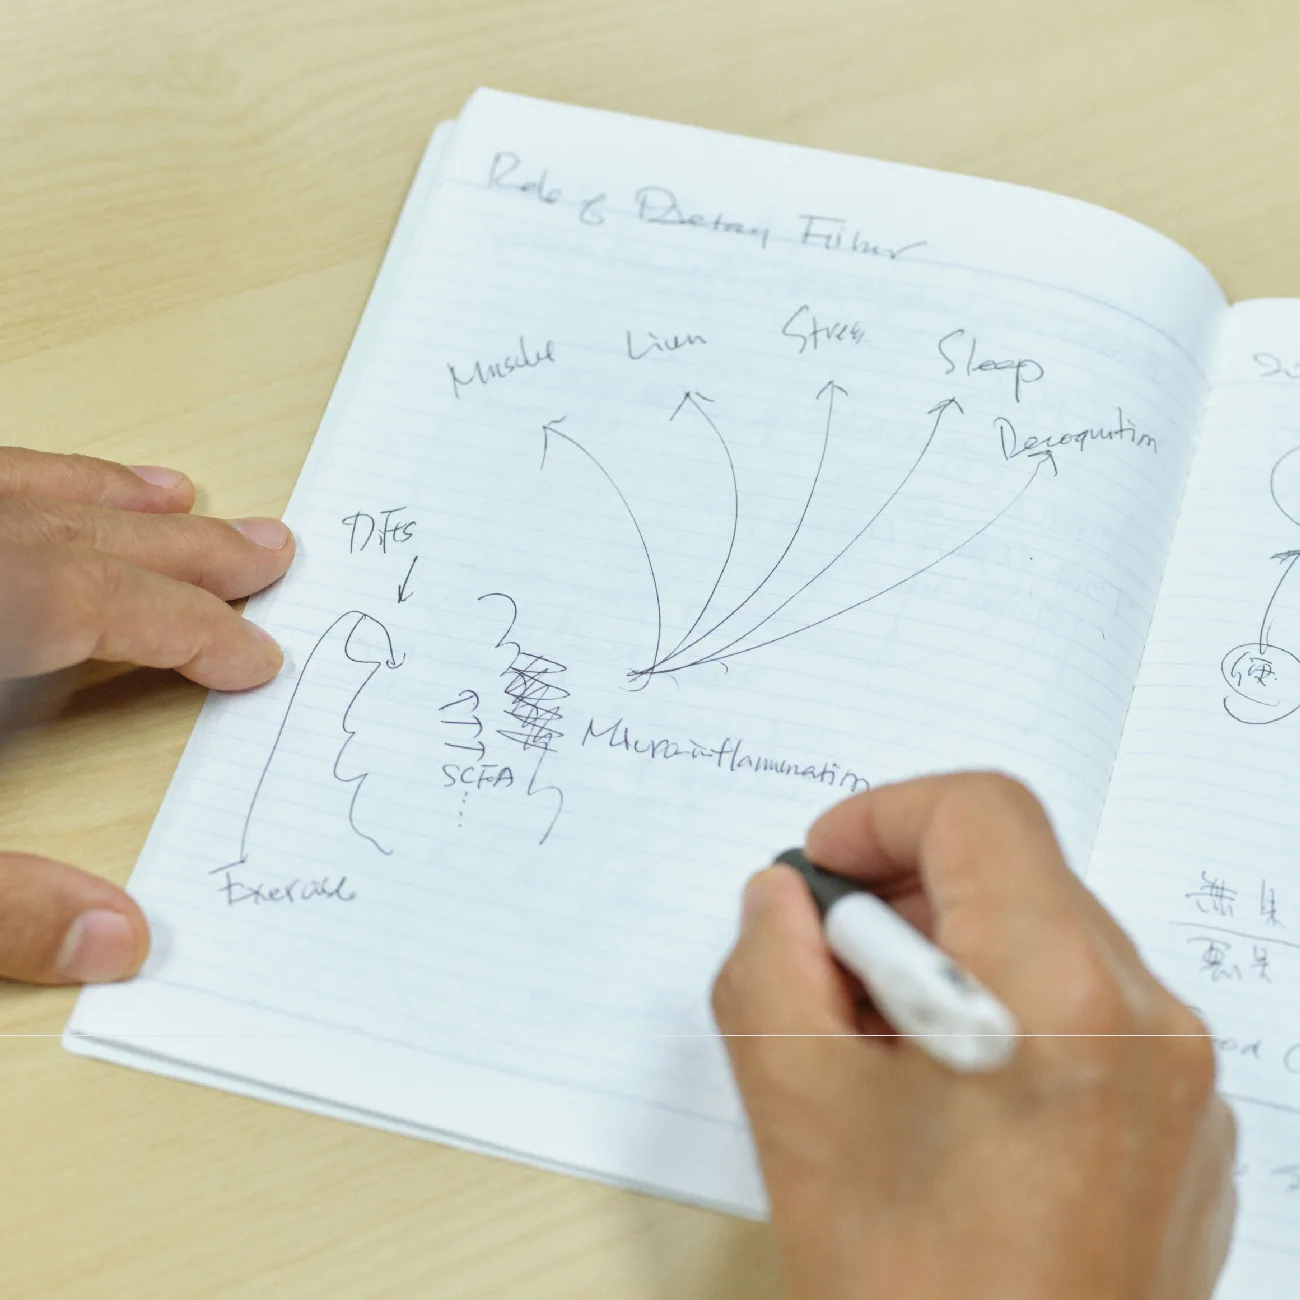 Role of Dietary Fiber
Muscle Liver Stress Sleep
Decognition
DFs
SCFA
Microinflammation
Exercise
便